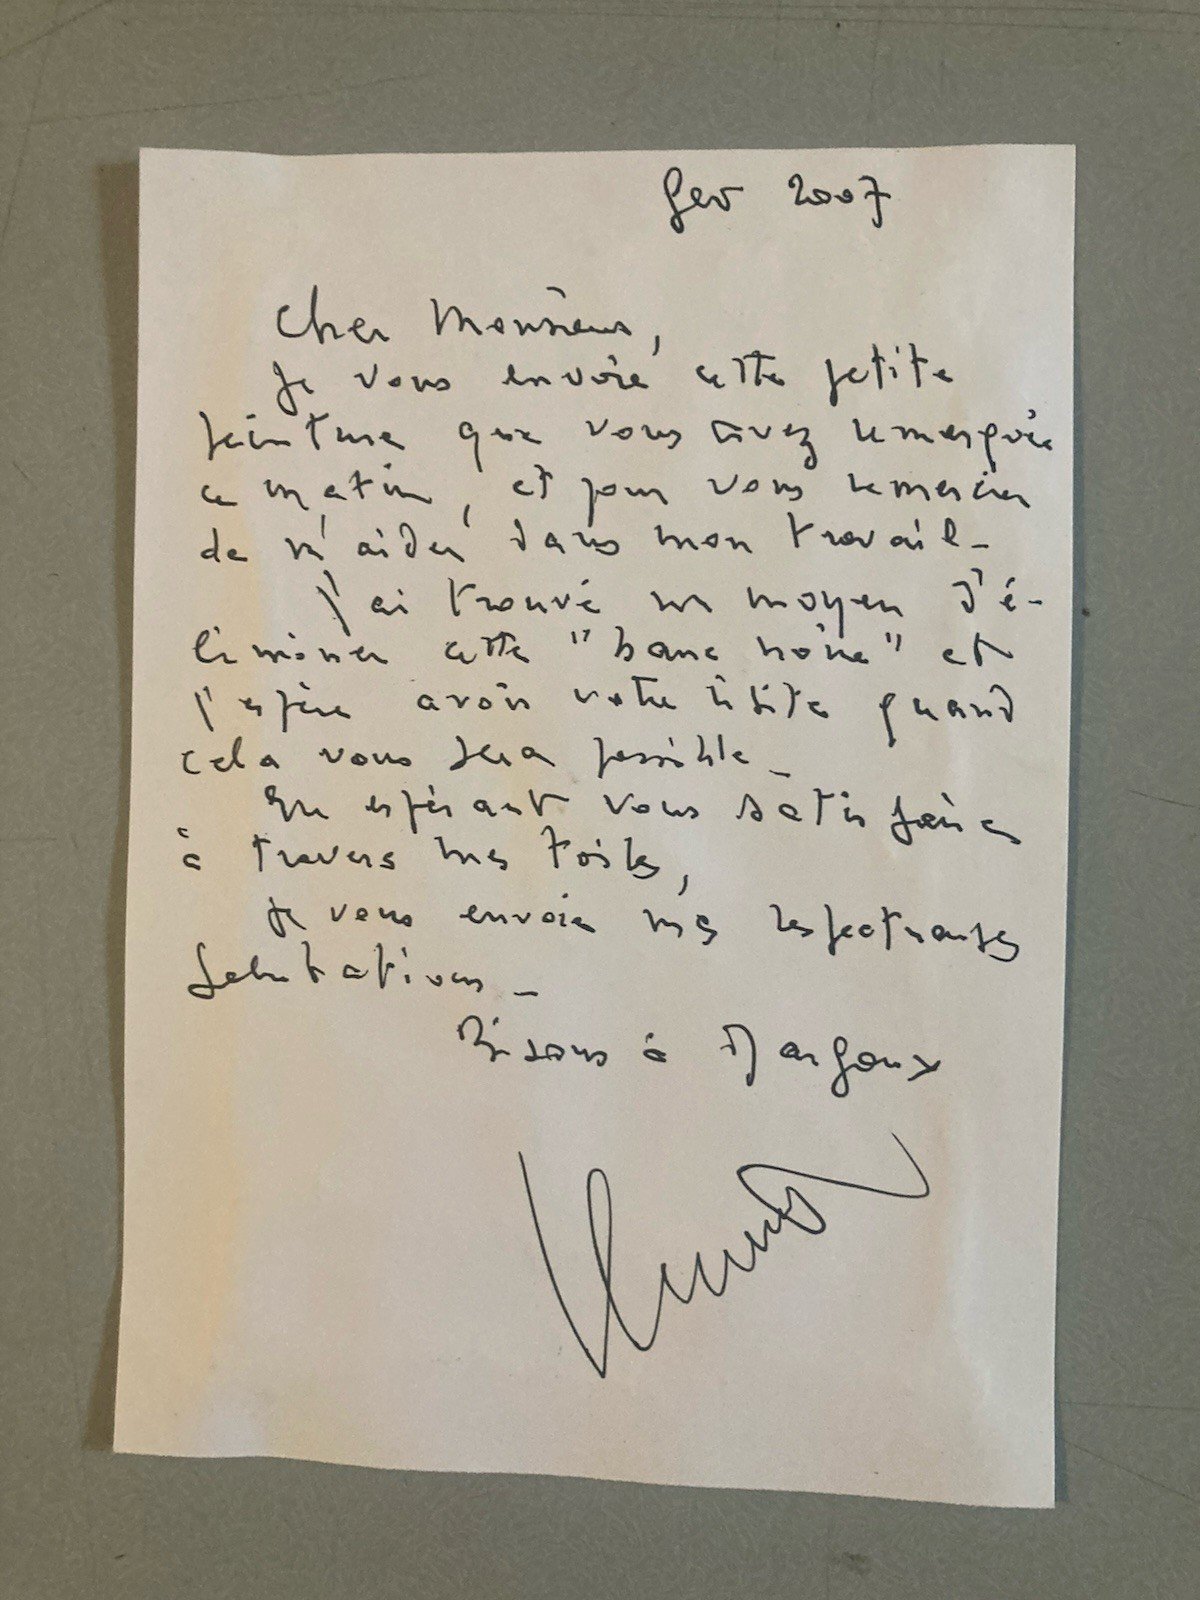 fev 2007
Cher Monsieur,
Je vous envoie cette petite
peinture que vous avez remarquée
ce matin, et pour vous remercier
de m'aider dans mon travail_
J'ai trouvé un moyen d'é-
liminer cette "barre noire" et
j'espère avoir votre visite quand
cela vous sera possible_
En espérant vous satisfaire
à travers mes toiles,
Je vous envoie mes respectueuses
salutations_
Bisous à Margaux